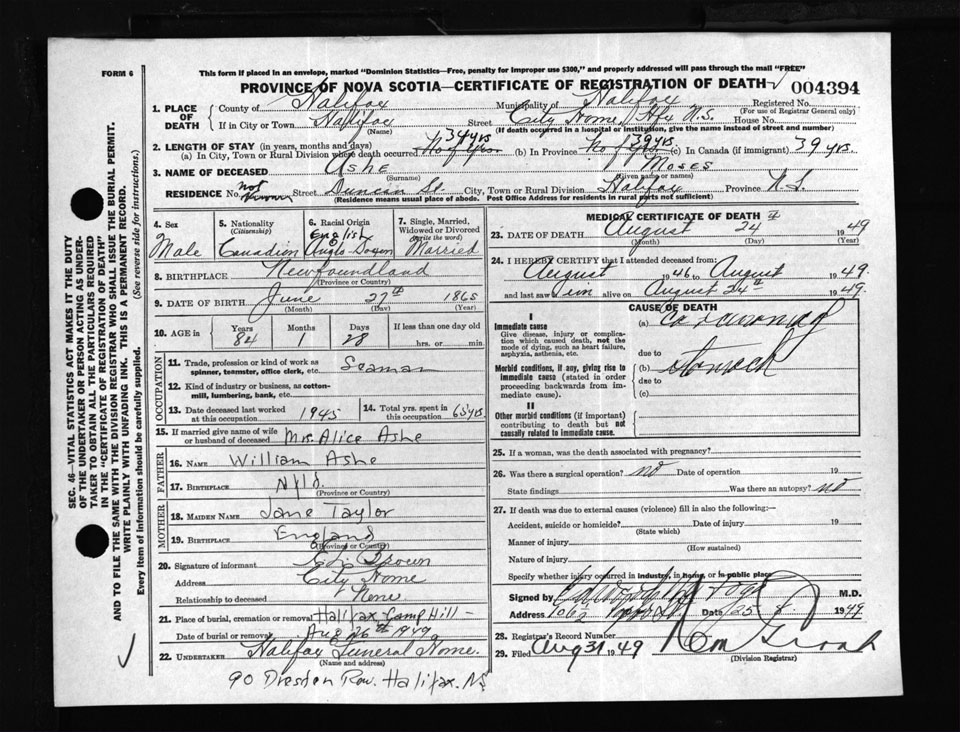 FORM 6
This form if placed in an envelope, marked "Dominion Statistics—Free, penalty for improper use $300," and properly addressed will pass through the mail "FREE"
PROVINCE OF NOVA SCOTIA—CERTIFICATE OF REGISTRATION OF DEATH 004394
1. PLACE OF DEATH
County of Halifax Municipality of Halifax Registered No.
(For use of Registrar General only)
If in City or Town Halifax Street City Home, Hfx N.S. House No.
(Name) (If death occurred in a hospital or institution, give the name instead of street and number)
2. LENGTH OF STAY (in years, months and days)
(a) In City, Town or Rural Division where death occurred 34 yrs (b) In Province 39 yrs (c) In Canada (if immigrant) 39 yrs.
3. NAME OF DECEASED Ashe Moses
(Surname) (Given name or names)
RESIDENCE No. not known Street Duncan St. City, Town or Rural Division Halifax Province N.S.
(Residence means usual place of abode. Post Office Address for residents in rural parts not sufficient)
4. Sex Male
5. Nationality (Citizenship) Canadian
6. Racial Origin English Anglo-Saxon
7. Single, Married, Widowed or Divorced (write the word) Married
8. BIRTHPLACE Newfoundland
(Province or Country)
9. DATE OF BIRTH June 27th 1865
(Month) (Day) (Year)
10. AGE in Years Months Days If less than one day old
84 1 28 hrs. or min.
OCCUPATION
11. Trade, profession or kind of work as spinner, teamster, office clerk, etc. Seaman
12. Kind of industry or business, as cotton-mill, lumbering, bank, etc.
13. Date deceased last worked at this occupation 1945
14. Total yrs. spent in this occupation 65 yrs.
15. If married give name of wife or husband of deceased Mrs. Alice Ashe
FATHER
16. NAME William Ashe
17. BIRTHPLACE Nfld.
(Province or Country)
MOTHER
18. MAIDEN NAME Jane Taylor
19. BIRTHPLACE England
(Province or Country)
20. Signature of informant Brown
Address City Home
Relationship to deceased None
21. Place of burial, cremation or removal Halifax-Camp Hill-
Date of burial or removal Aug 26th 1949
22. UNDERTAKER Halifax Funeral Home.
(Name and address)
90 Dresden Row. Halifax. N.S.
MEDICAL CERTIFICATE OF DEATH
23. DATE OF DEATH August 24th 1949
(Month) (Day) (Year)
24. I HEREBY CERTIFY that I attended deceased from:
August 1946 to August 1949.
and last saw him alive on August 24th 1949.
CAUSE OF DEATH
I
Immediate cause
Give disease, injury or complication which caused death, not the mode of dying, such as heart failure, asphyxia, asthenia, etc.
(a) Carcinoma of
due to
Morbid conditions, if any, giving rise to immediate cause (stated in order proceeding backwards from immediate cause).
(b) stomach
due to
(c)
II
Other morbid conditions (if important) contributing to death but not causally related to immediate cause.
25. If a woman, was the death associated with pregnancy?
26. Was there a surgical operation? no Date of operation 19
State findings Was there an autopsy? no
27. If death was due to external causes (violence) fill in also the following:—
Accident, suicide or homicide? Date of injury 19
(State which)
Manner of injury
(How sustained)
Nature of injury
Specify whether injury occurred in industry, in home, or in public place
Signed by M.D.
Address Date 25 8 1949
28. Registrar's Record Number
29. Filed Aug 31 1949
(Division Registrar)
SEC. 46—VITAL STATISTICS ACT MAKES IT THE DUTY OF THE UNDERTAKER OR PERSON ACTING AS UNDERTAKER TO OBTAIN ALL THE PARTICULARS REQUIRED IN THE "CERTIFICATE OF REGISTRATION OF DEATH" AND TO FILE THE SAME WITH THE DIVISION REGISTRAR WHO SHALL ISSUE THE BURIAL PERMIT.
WRITE PLAINLY WITH UNFADING INK. THIS IS A PERMANENT RECORD.
Every item of information should be carefully supplied. (See reverse side for instructions.)